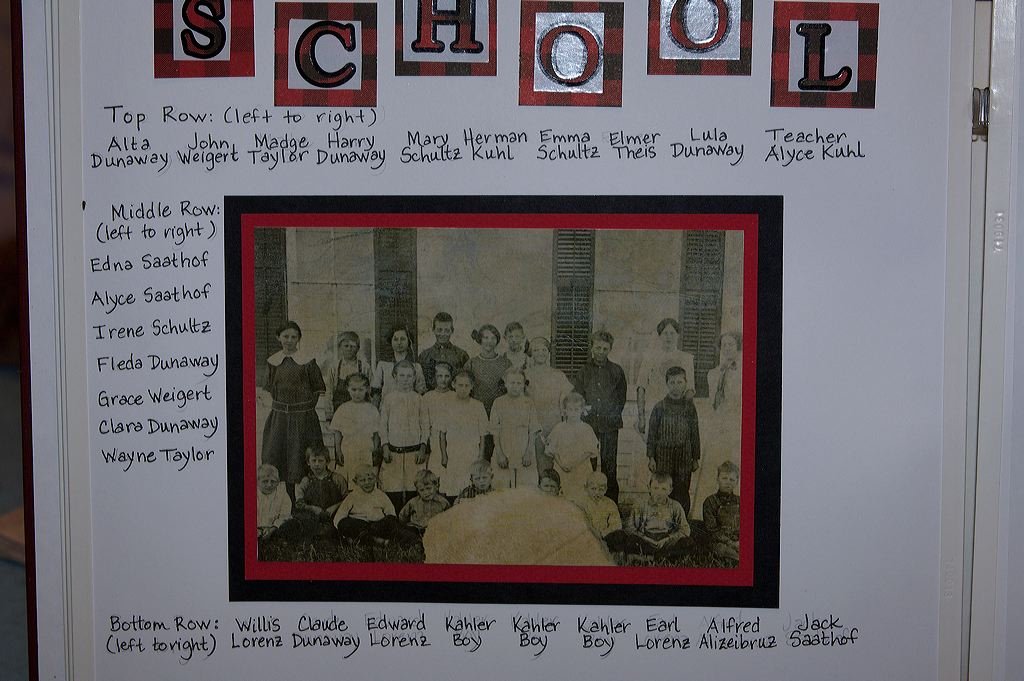 SCHOOL
Top Row: (left to right)
Alta John Madge Harry Mary Herman Emma Elmer Lula Teacher
Dunaway Weigert Taylor Dunaway Schultz Kuhl Schultz Theis Dunaway Alyce Kuhl
Middle Row:
(left to right)
Edna Saathof
Alyce Saathof
Irene Schultz
Fleda Dunaway
Grace Weigert
Clara Dunaway
Wayne Taylor
Bottom Row: Willis Claude Edward Kahler Kahler Kahler Earl Alfred Jack
(left to right) Lorenz Dunaway Lorenz Boy Boy Boy Lorenz Alizeibruz Saathof